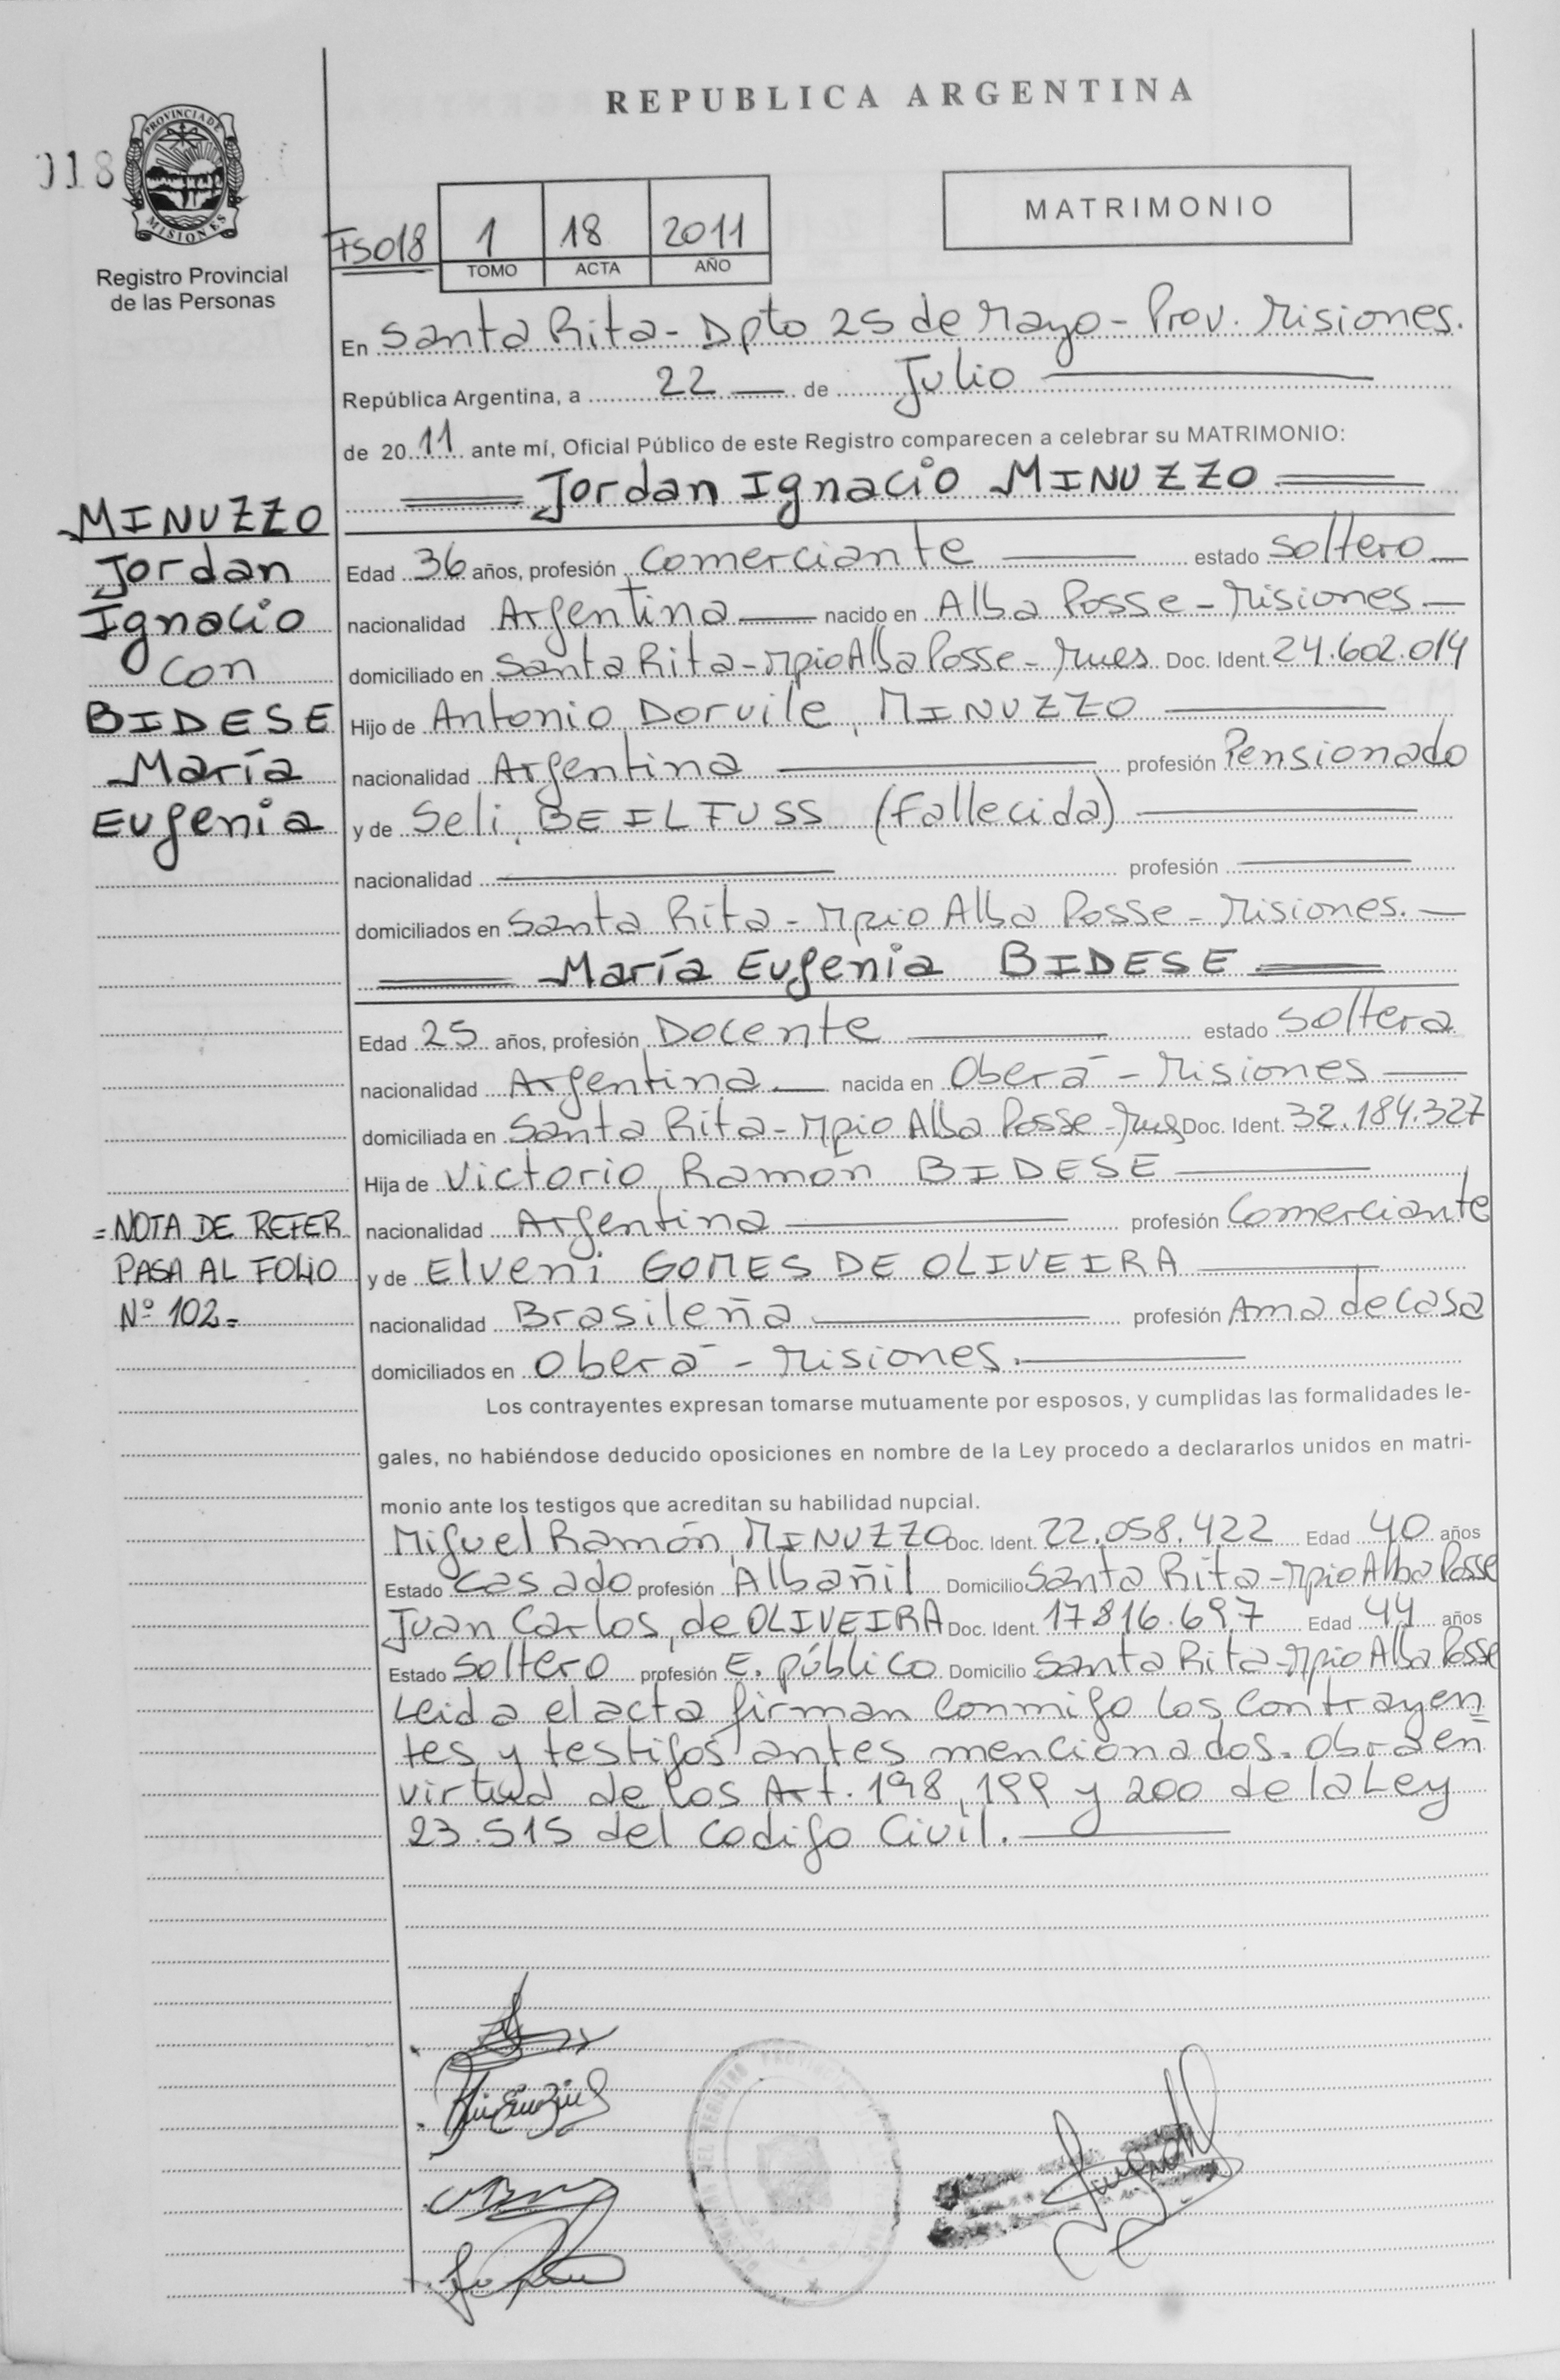 REPUBLICA ARGENTINA
018
PROVINCIA DE
MISIONES
Registro Provincial
de las Personas
MATRIMONIO
FS018 1 18 2011
TOMO ACTA AÑO
En Santa Rita - Dpto 25 de Mayo - Prov. Misiones.
República Argentina, a 22 de Julio
de 2011 ante mí, Oficial Público de este Registro comparecen a celebrar su MATRIMONIO:
Jordan Ignacio MINUZZO
MINUZZO
Jordan
Ignacio
con
BIDESE
María
Eugenia
Edad 36 años, profesión Comerciante estado soltero
nacionalidad Argentina nacido en Alba Posse - Misiones
domiciliado en Santa Rita - Mpio Alba Posse - Mnes Doc. Ident. 24.602.014
Hijo de Antonio Dorvile, MINUZZO
nacionalidad Argentina profesión Pensionado
y de Seli, BEILFUSS (Fallecida)
nacionalidad profesión
domiciliados en Santa Rita - Mpio Alba Posse - Misiones.
María Eugenia BIDESE
Edad 25 años, profesión Docente estado soltera
nacionalidad Argentina nacida en Oberá - Misiones
domiciliada en Santa Rita - Mpio Alba Posse - Mnes Doc. Ident. 32.184.327
Hija de Victorio, Ramón BIDESE
nacionalidad Argentina profesión Comerciante
y de Elveni GOMES DE OLIVEIRA
nacionalidad Brasileña profesión Ama de casa
domiciliados en Oberá - Misiones.
= NOTA DE REFER
PASA AL FOLIO
Nº 102 =
Los contrayentes expresan tomarse mutuamente por esposos, y cumplidas las formalidades le-
gales, no habiéndose deducido oposiciones en nombre de la Ley procedo a declararlos unidos en matri-
monio ante los testigos que acreditan su habilidad nupcial.
Miguel Ramón, MINUZZO Doc. Ident. 22.058.422 Edad 40 años
Estado Casado profesión Albañil Domicilio Santa Rita - Mpio Alba Posse
Juan Carlos, de OLIVEIRA Doc. Ident. 17816.697 Edad 44 años
Estado Soltero profesión E. público Domicilio Santa Rita - Mpio Alba Posse
Leida el acta firman conmigo los contrayen
tes y testigos antes mencionados. Obra en
virtud de los Art. 198, 199 y 200 de la Ley
23.515 del Codigo Civil.